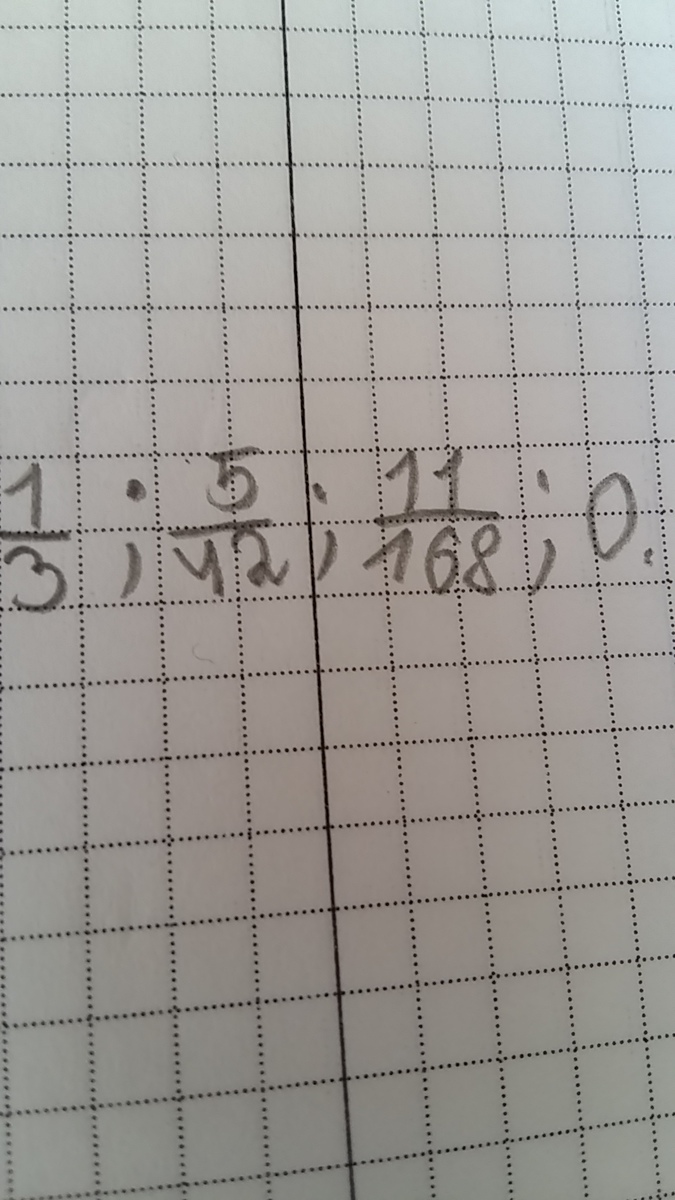 1/3 ; 5/42 ; 11/168 ; 0.